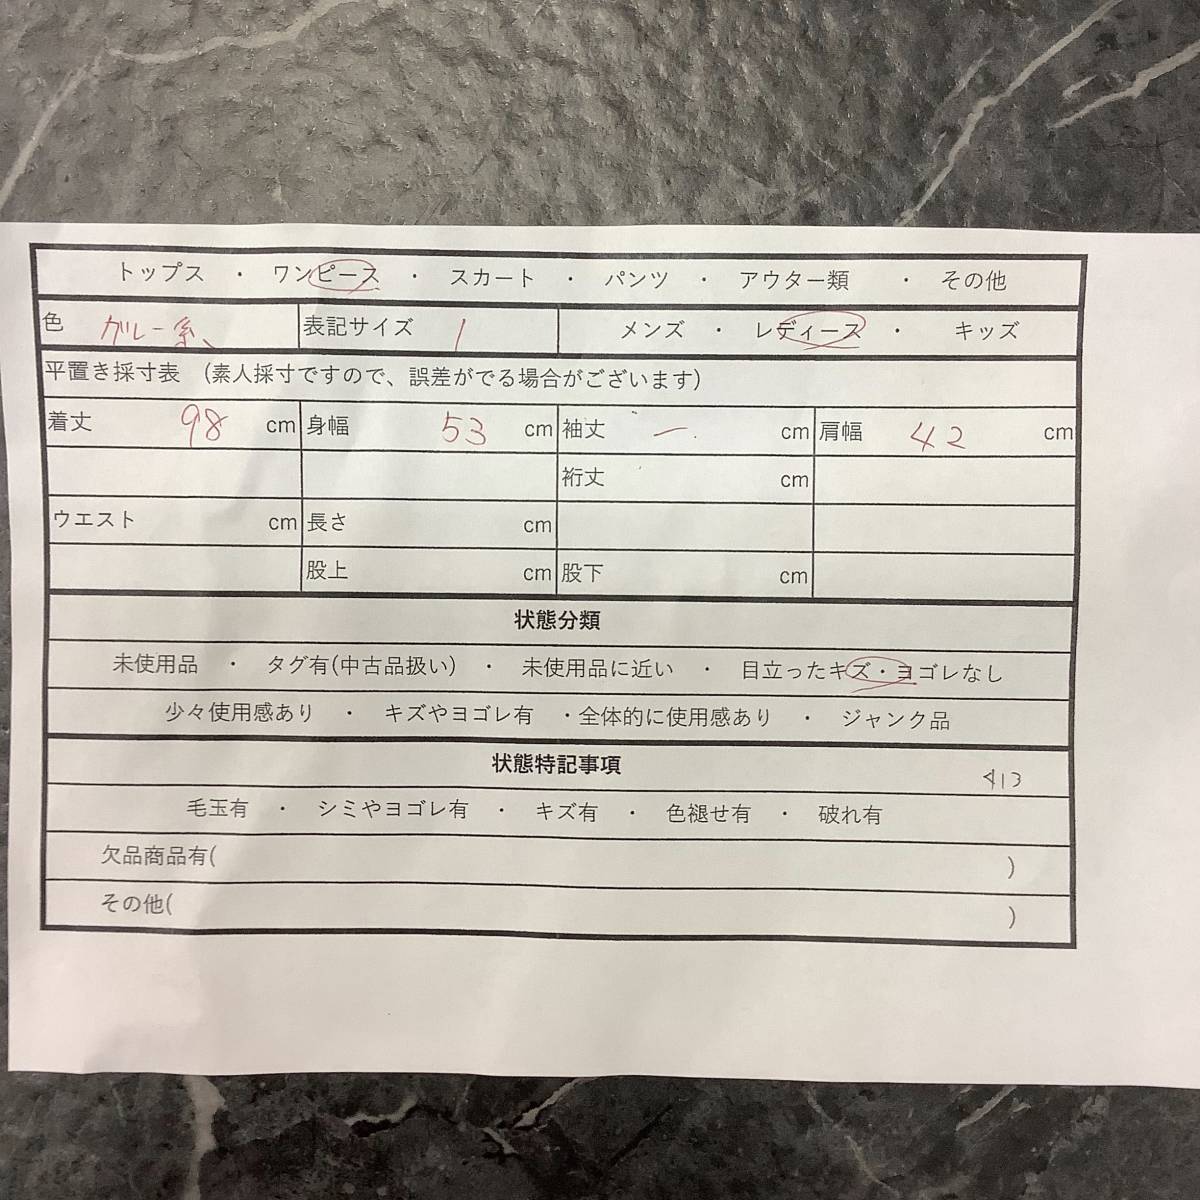 トップス ・ ワンピース ・ スカート ・ パンツ ・ アウター類 ・ その他
色 グレー系 表記サイズ 1 メンズ ・ レディース ・ キッズ
平置き採寸表 (素人採寸ですので、誤差がでる場合がございます)
着丈 98 cm 身幅 53 cm 袖丈 ー. cm 肩幅 42 cm
裄丈 cm
ウエスト cm 長さ cm
股上 cm 股下 cm
状態分類
未使用品 ・ タグ有(中古品扱い) ・ 未使用品に近い ・ 目立ったキズ・ヨゴレなし
少々使用感あり ・ キズやヨゴレ有 ・全体的に使用感あり ・ ジャンク品
状態特記事項
413
毛玉有 ・ シミやヨゴレ有 ・ キズ有 ・ 色褪せ有 ・ 破れ有
欠品商品有( )
その他( )